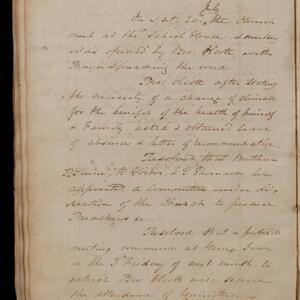 July
On Sat. 20th the Church
met at the School House, & meeting
was opened by Bro. Scott with
Prayer & preaching the word.
Bro. Scott after stating
the necessity of a change of climate
for the benefit of the health of himself
& Family asked & obtained leave
of absence & letter of recommendation
Resolved that Brethren
be
appointed a Committee under di-
rection of the Church to procure
Preachers &c
Resolved that a protracted
meeting commence at
on the 3d Friday of next month, to
which Bro. Scott will secure
the attendance of Ministers